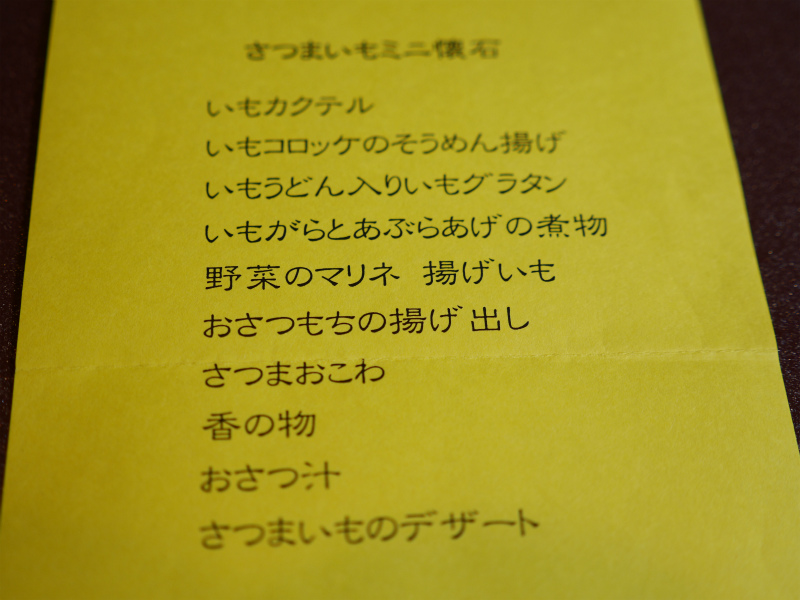 さつまいもミニ懐石
いもカクテル
いもコロッケのそうめん揚げ
いもうどん入りいもグラタン
いもがらとあぶらあげの煮物
野菜のマリネ 揚げいも
おさつもちの揚げ出し
さつまおこわ
香の物
おさつ汁
さつまいものデザート